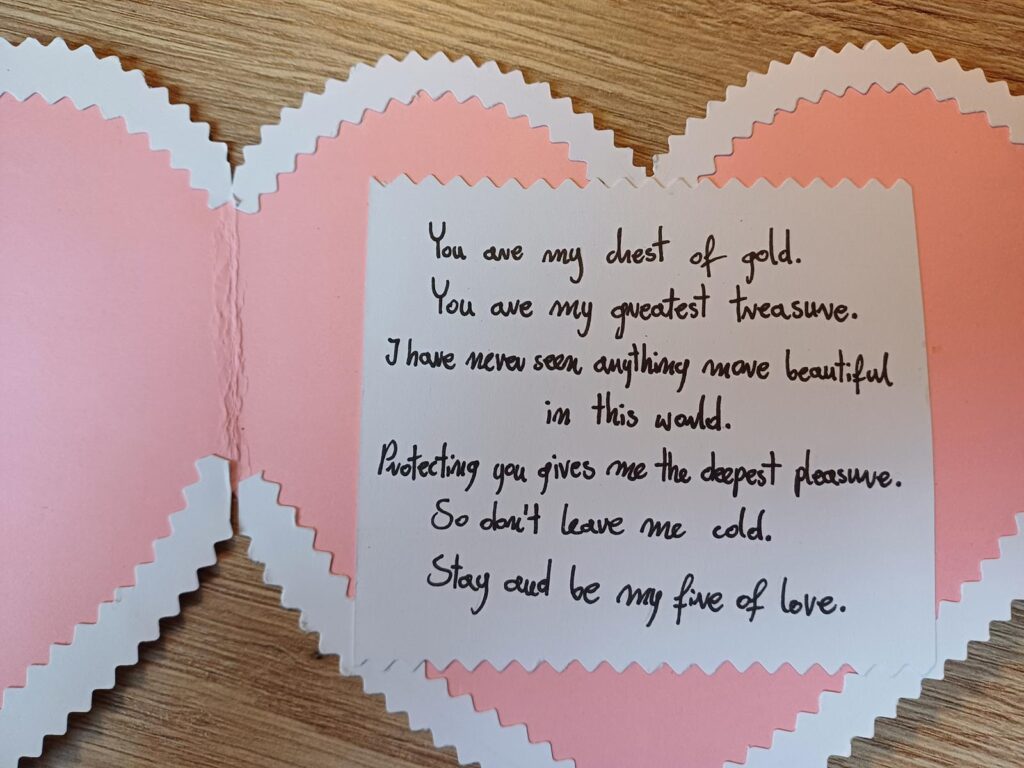 You are my chest of gold.
You are my greatest treasure.
I have never seen anything more beautiful
in this world.
Protecting you gives me the deepest pleasure.
So don't leave me cold.
Stay and be my fire of love.